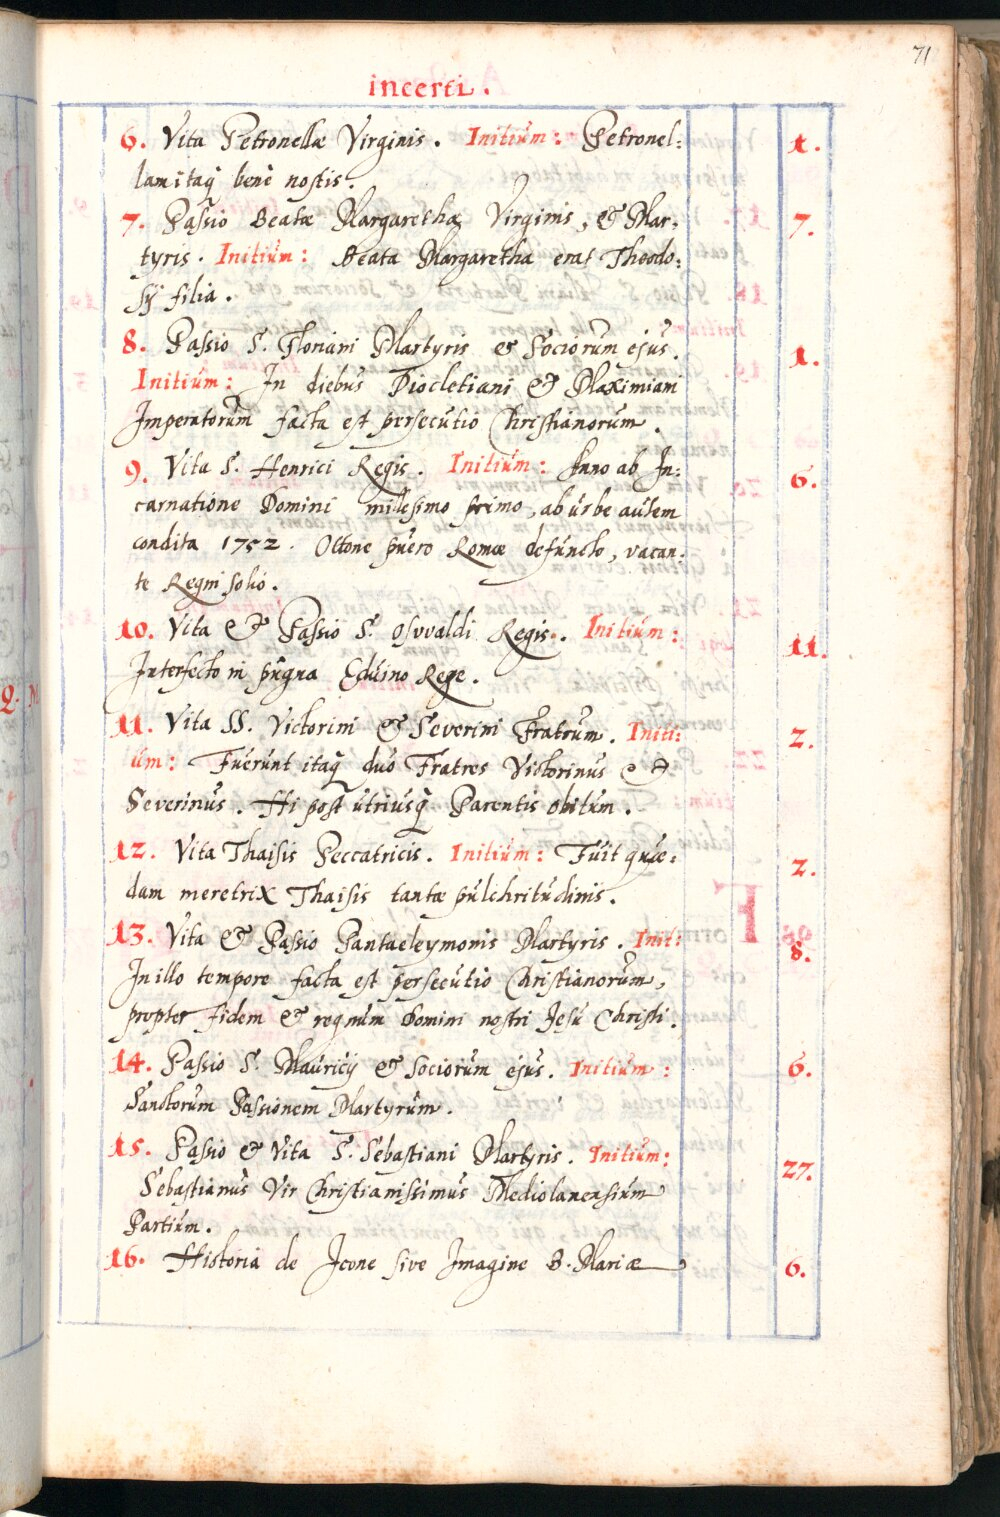 71
incerti.
6. Vita Petronellæ Virginis. Initium: Petronel: 1.
lam itaq̃ benè nostis.
7. Passio Beatæ Margarethæ Virginis, & Mar- 7.
tyris. Initium: Beata Margaretha erat Theodo:
sÿ filia.
8. Passio S. Floriani Martyris & Sociorum ejus. 1.
Initium: In diebus Diocletiani & Maximiani
Imperatorum facta est persecutio Christianorum.
9. Vita S. Henrici Regis. Initium: Anno ab In: 6.
carnatione Domini milesimo primo, ab urbe autem
condita 1752. Ottone puero Romæ defuncto, vacan:
te Regni solio.
10. Vita & Passio S. Osvvaldi Regis. Initium: 11.
Interfecto in pugna Eduino Rege.
11. Vita SS. Victorini & Severini Fratrum. Initi: 2.
um: Fuerunt itaq̃ duo Fratres Victorinus &
Severinus. Hi post utriusq̃ Parentis obitum.
12. Vita Thaisis Peccatricis. Initium: Fuit quæ: 2.
dam meretrix Thaisis tantæ pulchritudinis.
13. Vita & Passio Pantaeleymonis Martyris. Init: 8.
In illo tempore facta est persecutio Christianorum,
propter fidem & regnum Domini nostri Jesu Christi.
14. Passio S. Mauricÿ & Sociorum ejus. Initium: 6.
Sanctorum Passionem Martyrum.
15. Passio & Vita S. Sebastiani Martyris. Initium: 27.
Sebastianus Vir Christianissimus Mediolanensium
Partium.
16. Historia de Icone sive Imagine B. Mariæ 6.